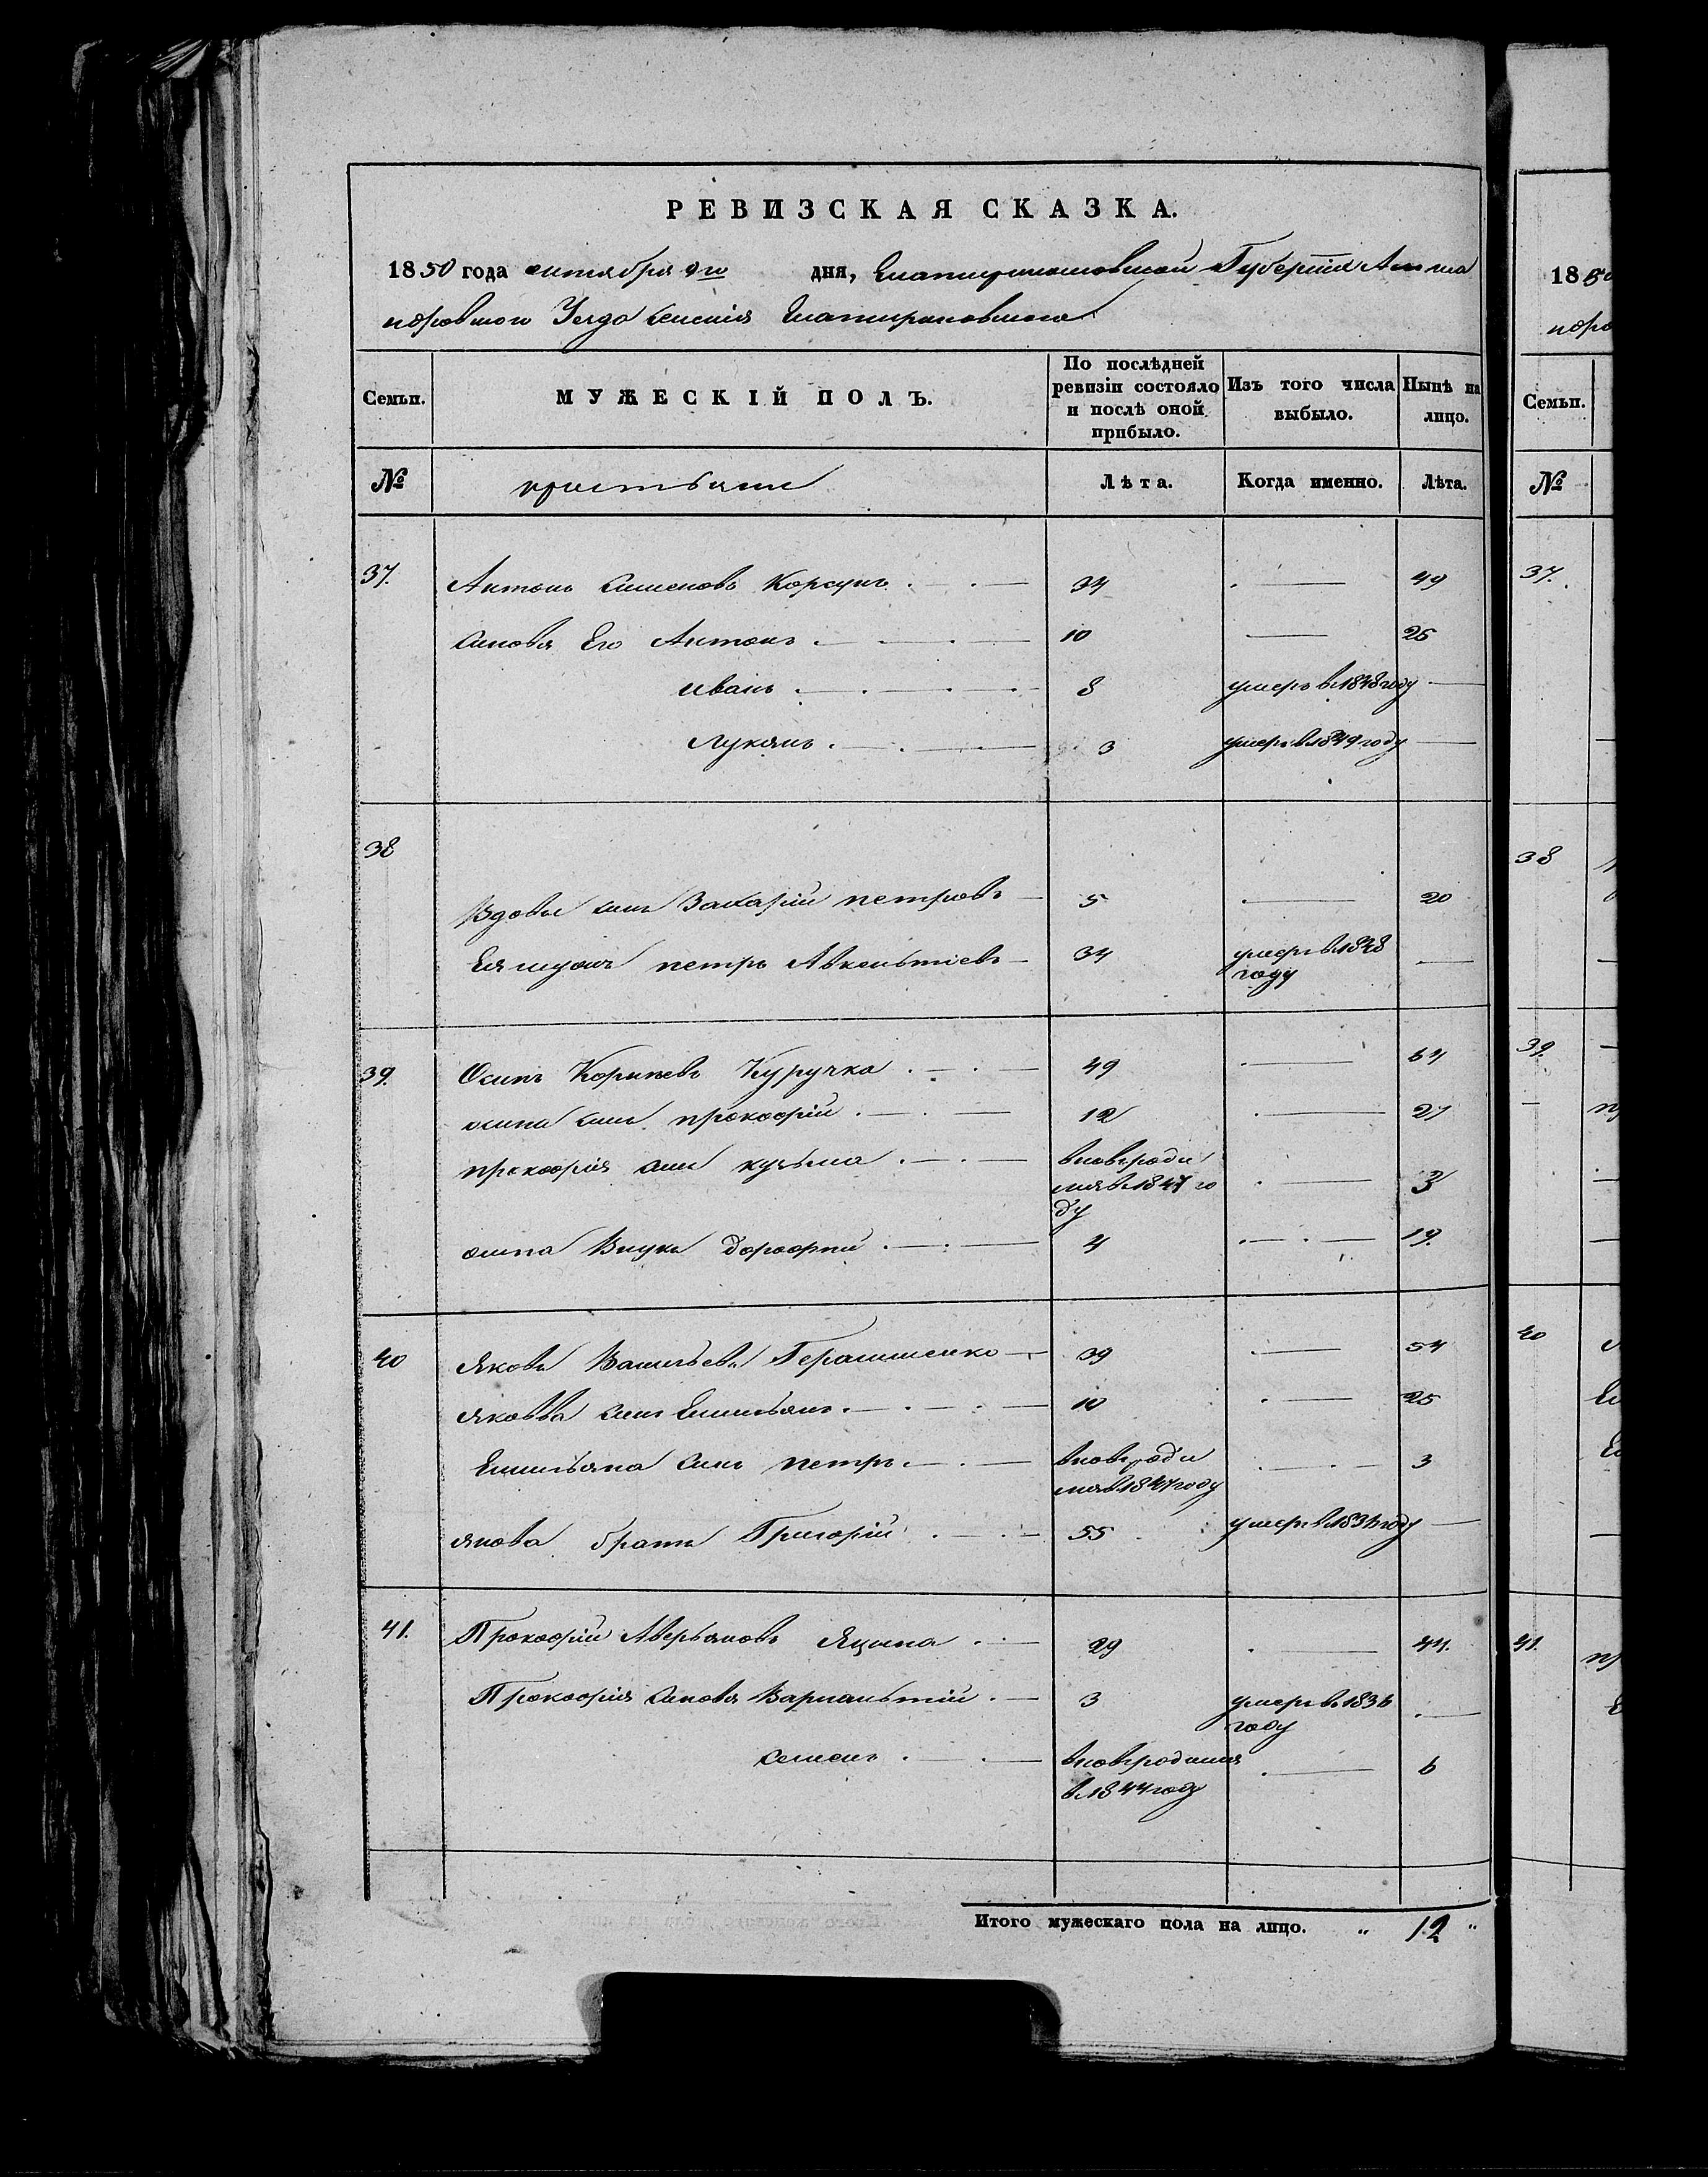 РЕВИЗСКАЯ СКАЗКА.
1850 года октября дня, Екатеринославской Губернии Алекса
ндровского Уезда Селения
Семьи.
МУЖЕСКІЙ ПОЛЪ.
По послѣдней
ревизіи состояло
и послѣ оной
прибыло.
Изъ того числа
выбыло.
Нынѣ на
лицо.
№
крестьяне
Лѣта.
Когда именно.
Лѣта.
37. Антонъ Семеновъ Корсунъ 34 49
Сыновя Его Антонъ 10 25
Иванъ 8 умеръ в 1848 году
Лукянъ 3 умеръ в 1849 году
38
Вдовы сынъ Захарій петровъ 5 20
Ея мужъ петръ Авксентіевъ 34 умеръ в 1848
году
39. Осипъ Корнѣевъ Куручка 49 64
осипа сынъ прокофій 12 27
прокофія сынъ кузьма вновьроди
лся в 1847 го
ду
3
осипа Внукъ дорофей 4 19.
40 Яковъ Васильевъ Геращенко 39 54
Якова сынъ Емельянъ 10 25
Емельяна сынъ петръ вновьроди
лся в 1847 году
3
якова братъ Григорій 55 умеръ в 1836 году
41. Прокофій Аверьяновъ Яцына 29 44.
Прокофія Сыновя 3 умеръ в 1836
году
семенъ вновьродился
в 1844 году
6
Итого мужескаго пола на лицо. „ 12 „
1850
Семьи.
№
37.
38
39.
40
41.